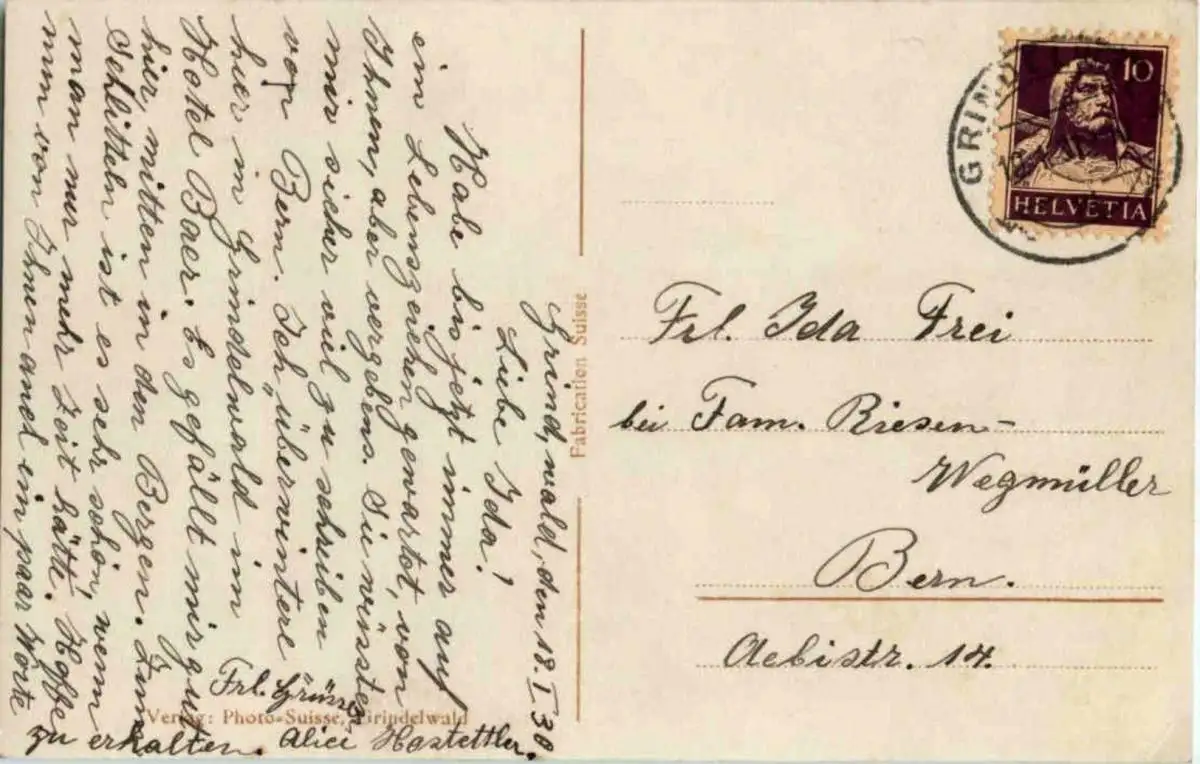 Grindwald, den 18.I.30
Liebe Ida!
Habe bis jetzt immer auf
ein Lebenszeichen gewartet, von
Ihnen, aber vergebens. Sie wüssten
mir sicher viel zu schreiben
von Bern. Ich „überwintere
hier in Grindelwald im
Hotel Baer. Es gefällt mir gut
hier, mitten in den Bergen. Zum
Schlitteln ist es sehr schön, wenn
man nur mehr Zeit hätte. Hoffe
nun von Ihnen auch ein paar Worte
zu erhalten.
Frl. Grüsse
Alice Hostettler.
Verlag: Photo-Suisse, Grindelwald
Fabrication Suisse
GRIND
10
HELVETIA
Frl. Ida Frei
bei Fam. Riesen-
Wegmüller
Bern.
Aebistr. 14.